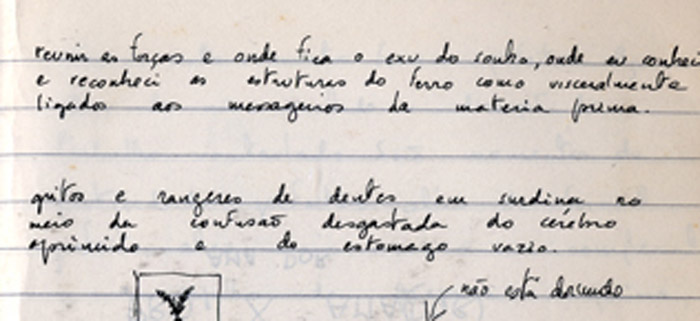 reunir as forças e onde fica o exu do sonho, onde eu conheci
e reconheci as estruturas do ferro como visceralmente
ligados aos mensageiros da materia prima.
gritos e rangeres de dentes em surdina no
meio da confusão desgastada do cérebro
e do estomago vazio.
não está